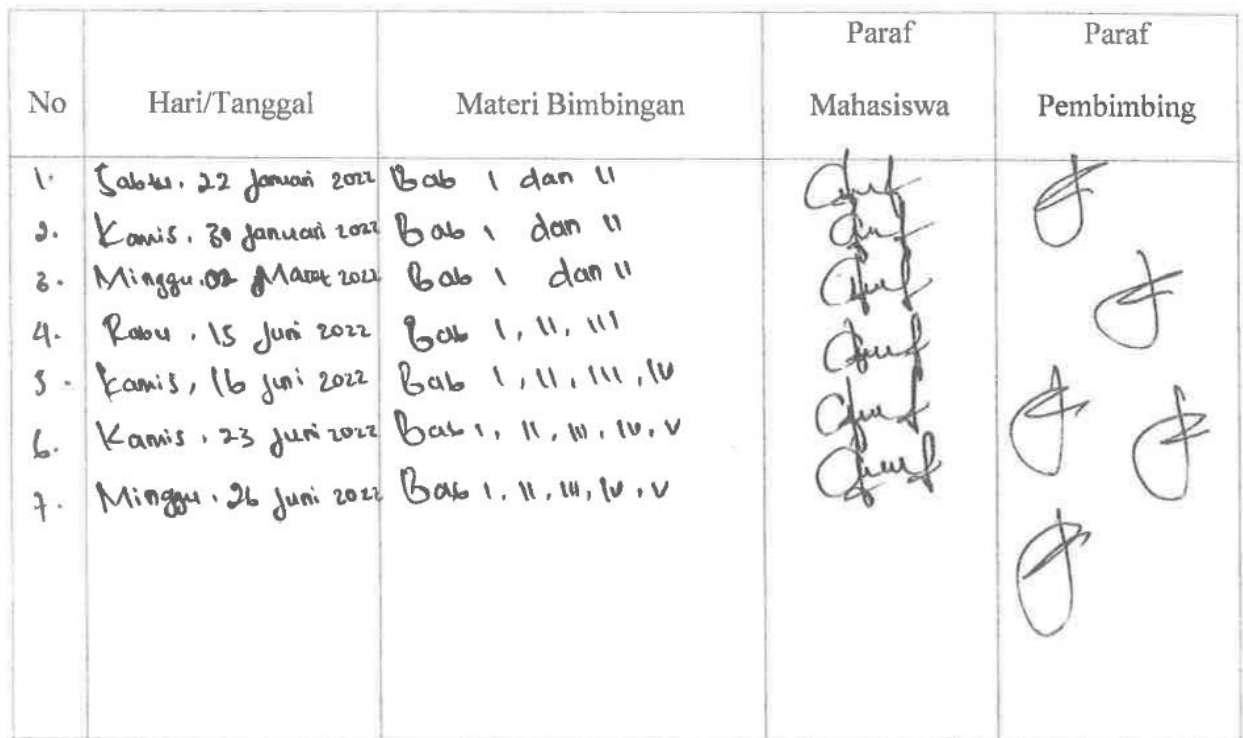 No Hari/Tanggal Materi Bimbingan Paraf Mahasiswa Paraf Pembimbing
1. Sabtu, 22 Januari 2022 Bab I dan II
2. Kamis, 30 Januari 2022 Bab I dan II
3. Minggu, 02 Maret 2022 Bab I dan II
4. Rabu, 15 Juni 2022 Bab I, II, III
5. Kamis, 16 Juni 2022 Bab I, II, III, IV
6. Kamis, 23 Juni 2022 Bab I, II, III, IV, V
7. Minggu, 26 Juni 2022 Bab I, II, III, IV, V